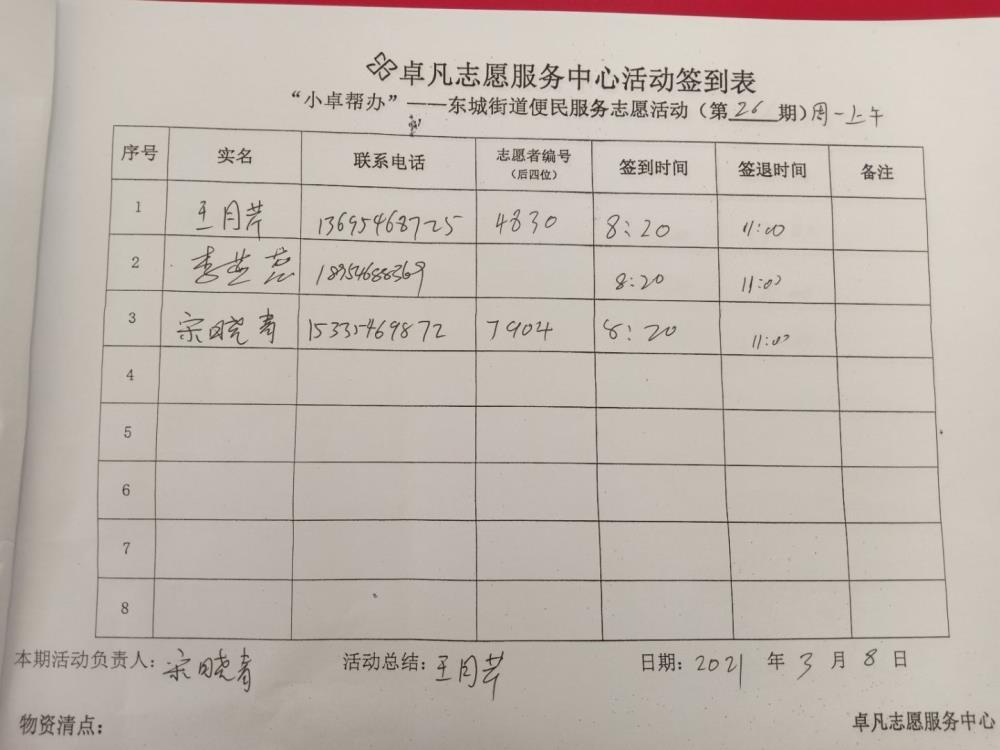 卓凡志愿服务中心活动签到表
“小卓帮办”——东城街道便民服务志愿活动（第 26 期）周一上午
序号 实名 联系电话 志愿者编号（后四位） 签到时间 签退时间 备注
1 王月芹 13695468725 4830 8:20 11:00
2 李 18954688369 8:20 11:00
3 宋晓青 15335469872 7904 8:20 11:00
4
5
6
7
8
本期活动负责人：宋晓青 活动总结：王月芹 日期：2021 年 3 月 8 日
物资清点： 卓凡志愿服务中心